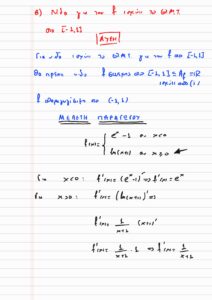 β) Νδο για την f ισχύει το Θ.Μ.Τ.
στο [-1,1]
ΛΥΣΗ
Για νδο ισχύει το Θ.Μ.Τ. για την f στο [-1,1]
θα πρέπει νδο f συνεχής στο [-1,1] ⊆ Af = ℝ
f παραγωγίσιμη στο (-1,1)
ΜΕΛΕΤΗ ΠΑΡΑΓΩΓΟΥ
f(x) = { e^x - 1 αν x<0
ln(x+1) αν x≥0
Για x<0: f'(x) = (e^x - 1)' ⇔ f'(x) = e^x
Για x>0: f'(x) = (ln(x+1))' ⇔
f'(x) = 1/(x+1) (x+1)'
f'(x) = 1/(x+1) · 1 ⇔ f'(x) = 1/(x+1)